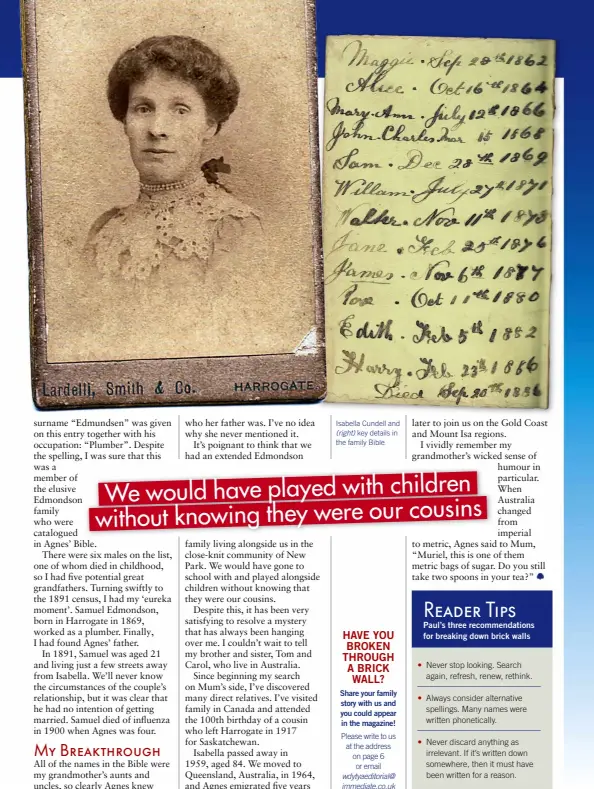 Lardelli, Smith & Co. HARROGATE
Maggie. Sep 28th 1862
Alice. Oct 16th 1864
Mary-Ann. July 12th 1866
John-Charles Mar 15 1868
Sam. Dec 28th 1869
Willam. July 27th 1871
Walter. Nov 11th 1873
Jane. Feb 25th 1876
James. Nov 6th 1877
Oct 11th 1880
Edith. Feb 5th 1882
Harry. Feb 23th 1886
Died Sep 20th 1886
Isabella Cundell and
(right) key details in
the family Bible
surname “Edmundsen” was given
on this entry together with his
occupation: “Plumber”. Despite
the spelling, I was sure that this
was a
member of
the elusive
Edmondson
family
who were
catalogued
in Agnes’ Bible.
There were six males on the list,
one of whom died in childhood,
so I had five potential great
grandfathers. Turning swiftly to
the 1891 census, I had my ‘eureka
moment’. Samuel Edmondson,
born in Harrogate in 1869,
worked as a plumber. Finally,
I had found Agnes’ father.
In 1891, Samuel was aged 21
and living just a few streets away
from Isabella. We’ll never know
the circumstances of the couple’s
relationship, but it was clear that
he had no intention of getting
married. Samuel died of influenza
in 1900 when Agnes was four.
My Breakthrough
All of the names in the Bible were
my grandmother’s aunts and
uncles, so clearly Agnes knew
who her father was. I’ve no idea
why she never mentioned it.
It’s poignant to think that we
had an extended Edmondson
We would have played with children
without knowing they were our cousins
family living alongside us in the
close-knit community of New
Park. We would have gone to
school with and played alongside
children without knowing that
they were our cousins.
Despite this, it has been very
satisfying to resolve a mystery
that has always been hanging
over me. I couldn’t wait to tell
my brother and sister, Tom and
Carol, who live in Australia.
Since beginning my search
on Mum’s side, I’ve discovered
many direct relatives. I’ve visited
family in Canada and attended
the 100th birthday of a cousin
who left Harrogate in 1917
for Saskatchewan.
Isabella passed away in
1959, aged 84. We moved to
Queensland, Australia, in 1964,
and Agnes emigrated five years
later to join us on the Gold Coast
and Mount Isa regions.
I vividly remember my
grandmother’s wicked sense of
humour in
particular.
When
Australia
changed
from
imperial
to metric, Agnes said to Mum,
“Muriel, this is one of them
metric bags of sugar. Do you still
take two spoons in your tea?”
HAVE YOU
BROKEN
THROUGH
A BRICK
WALL?
Share your family
story with us and
you could appear
in the magazine!
Please write to us
at the address
on page 6
or email
wdytyaeditorial@
immediate.co.uk
Reader Tips
Paul’s three recommendations
for breaking down brick walls
• Never stop looking. Search
again, refresh, renew, rethink.
• Always consider alternative
spellings. Many names were
written phonetically.
• Never discard anything as
irrelevant. If it’s written down
somewhere, then it must have
been written for a reason.